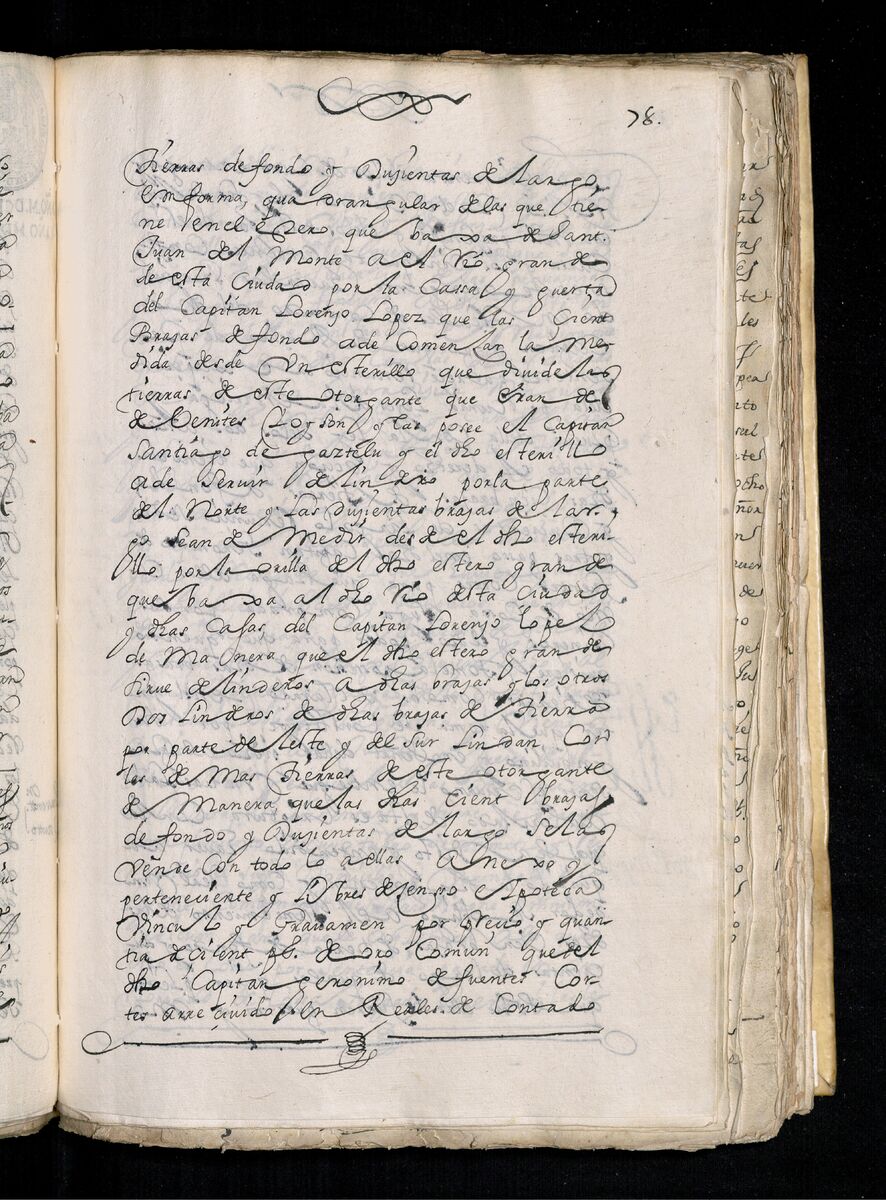 78.
tierras de fondo y Dusientas de largo,
en forma, quadrangular de las que tie-
ne en el estero que baxa de Sant.
Juan del Monte a el Rio grande
de esta Ciudad por la Cassa y guerta
del Capitan Lorenso Lopez que las Cient
Brasas de fondo a de Comensar la me-
dida desde Un esterillo que divide las
tierras de este otorgante que eran de
de Benites Oy son y las posee el Capitan
Santiago de gaztelu y el dho esterillo
a de Servir de lindero por la parte
del Norte y las Dusientas brasas de lar-
go Sean de Medir desde el dho esteri-
llo por la orilla del dho estero grande
que baxa al dho Rio desta Ciudad
y dhas Casas del Capitan Lorenso lopez
de Manera que el dho estero grande
Sirve de linderos a dhas brasas y los otros
Dos Linderos de dhas brasas de tierra
por parte del este y del Sur Lindan Con
las demas tierras de este otorgante
de Manera que las dhas Cient brasas
de fondo y Dusientas de largo Se las
Vende Con todo lo a ellas Anexo y
perteneciente y Libres de Senso e Ipoteca
Vinculo y Gravamen por Precio y quan-
tia de Cient ps. de oro Comun que del
dho Capitan geronimo de fuentes Cor-
tes a rrecivido en Reales de Contado